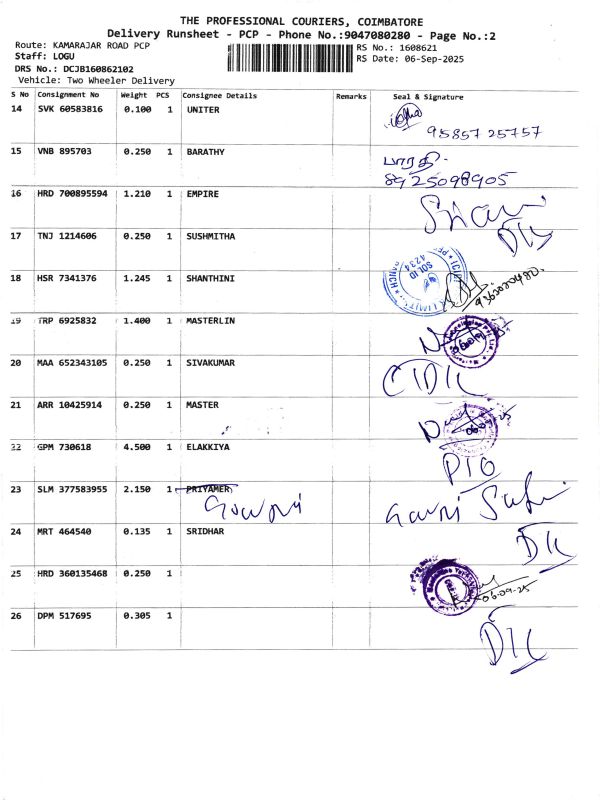 THE PROFESSIONAL COURIERS, COIMBATORE
Delivery Runsheet - PCP - Phone No.:9047080280 - Page No.:2
Route: KAMARAJAR ROAD PCP
Staff: LOGU
DRS No.: DCJB160862102
Vehicle: Two Wheeler Delivery
RS No.: 1608621
RS Date: 06-Sep-2025
S No Consignment No Weight PCS Consignee Details Remarks Seal & Signature
14 SVK 60583816 0.100 1 UNITER
95857 25757
15 VNB 895703 0.250 1 BARATHY பாரதி
8925098905
16 HRD 700895594 1.210 1 EMPIRE
17 TNJ 1214606 0.250 1 SUSHMITHA
18 HSR 7341376 1.245 1 SHANTHINI
SOL ID
4234
19 TRP 6925832 1.400 1 MASTERLIN
20 MAA 652343105 0.250 1 SIVAKUMAR
21 ARR 10425914 0.250 1 MASTER
22 GPM 730618 4.500 1 ELAKKIYA
23 SLM 377583955 2.150 1 PRIYAMER
Gowri
24 MRT 464540 0.135 1 SRIDHAR
25 HRD 360135468 0.250 1
06-09-25
26 DPM 517695 0.305 1